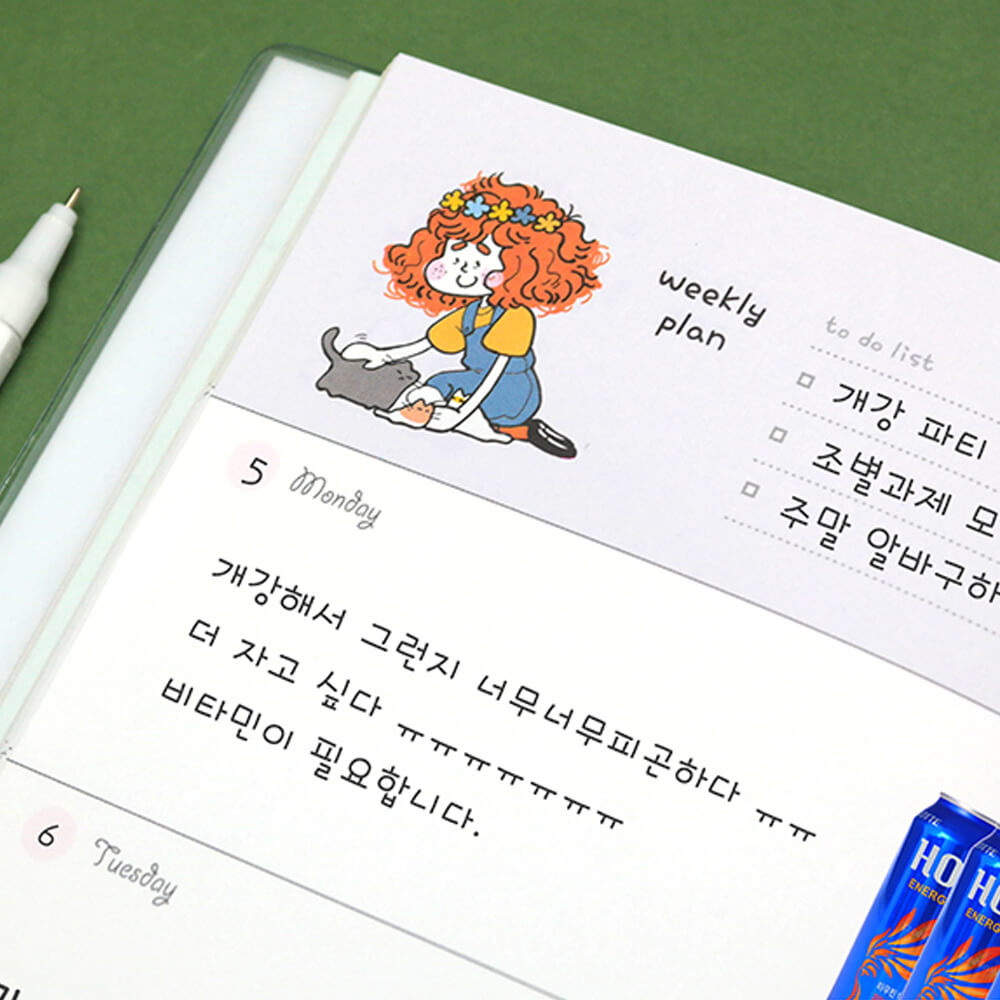 weekly
plan
to do list
개강 파티
조별과제
주말 알바구하
5 Monday
개강해서 그런지 너무너무피곤하다 ㅠㅠ
더 자고 싶다 ㅠㅠㅠㅠㅠㅠㅠ
비타민이 필요합니다.
6 Tuesday